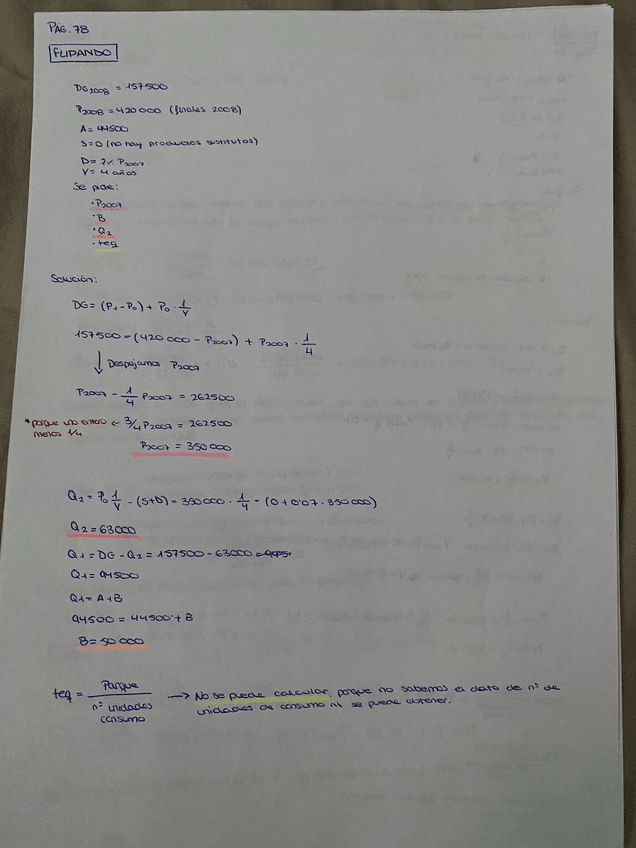 PÁG. 78
FLIPANDO
DG2008 = 157500
P2008 = 420 000 (finales 2008)
A = 44500
S = 0 (no hay productos sustitutos)
D = 7% P2007
V = 4 años
Se pide:
· P2007
· B
· Q2
· teq
Solución:
DG = (P1 - P0) + P0 · 1/V
157500 = (420 000 - P2007) + P2007 · 1/4
↓ Despejamos P2007
P2007 - 1/4 P2007 = 262500
*porque uno entero menos 1/4 ← 3/4 P2007 = 262500
P2007 = 350 000
Q2 = P0 1/V - (S+D) = 350000 · 1/4 - (0 + 0'07 · 350 000)
Q2 = 63000
Q1 = DG - Q2 = 157500 - 63000
Q1 = 94500
Q1 = A + B
94500 = 44500 + B
B = 50.000
teq = Parque / nº unidades consumo → No se puede calcular, porque no sabemos el dato de nº de
unidades de consumo ni se puede obtener.